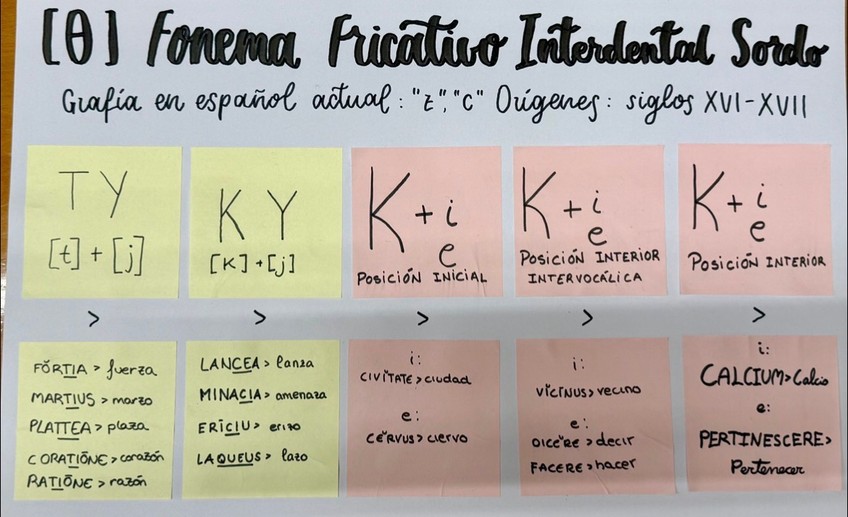 [θ] Fonema Fricativo Interdental Sordo
Grafía en español actual: "z", "c" Orígenes: siglos XVI-XVII
TY
[t] + [j]
KY
[K] + [j]
K + i
e
POSICIÓN INICIAL
K + i
e
POSICIÓN INTERIOR
INTERVOCÁLICA
K + i
e
POSICIÓN INTERIOR
>
>
>
>
>
FŎRTIA > fuerza
MARTIUS > marzo
PLATTEA > plaza
CORATIŌNE > corazón
RATIŌNE > razón
LANCEA > lanza
MINACIA > amenaza
ERĪCIU > erizo
LAQUEUS > lazo
i:
CIVĬTATE > ciudad
e:
CĔRVUS > ciervo
i:
VĪCĪNUS > vecino
e:
DICĔRE > decir
FACERE > hacer
i:
CALCIUM > Calcio
e:
PERTINESCERE >
Pertenecer